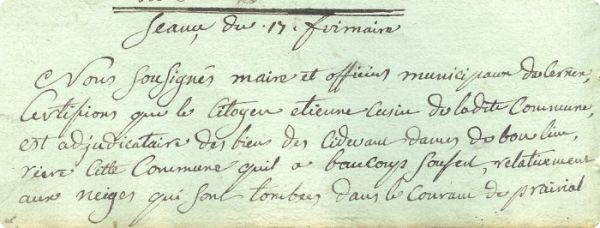 Seance du 17. frimaire
Nous sousignés maire et officiers municipaux de Cernex,
Certifions que le Citoyen etienne Cusin de ladite Commune,
est adjudicataire des biens des Cidevant dames de bon lieu,
riere Cette Commune quil a beaucoup soufert, relativement
aux neiges qui sont tombees dans le Courant de prairial